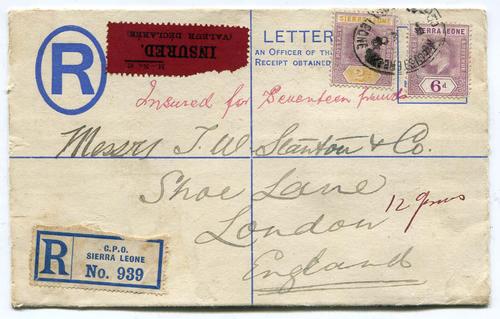 R
INSURED.
(VALEUR DÉCLARÉE)
LETTER
AN OFFICER OF THE
RECEIPT OBTAINED
SIERRA LEONE
SIERRA LEONE
6d
Insured for Seventeen francs
Messrs J. W. Stanton & Co.
Shoe Lane
London
12 gms
England
R
G.P.O.
SIERRA LEONE
No. 939